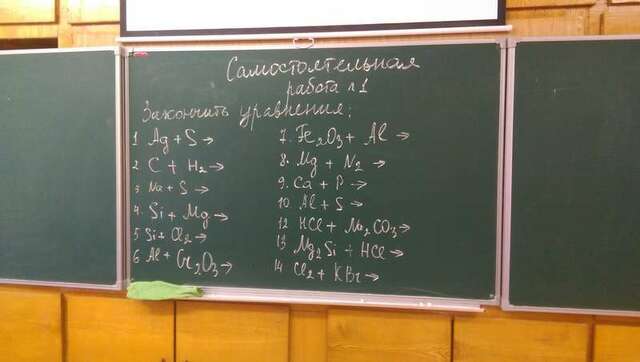 Самостоятельная
работа №1
Закончить уравнения:
1 Ag + S →
2 C + H₂ →
3 Na + S →
4. Si + Mg →
5 Si + Cl₂ →
6 Al + Cr₂O₃ →
7. Fe₂O₃ + Al →
8. Mg + N₂ →
9. Ca + P →
10 Al + S →
12 HCl + Na₂CO₃ →
13 Mg₂Si + HCl →
14 Cl₂ + KBr →